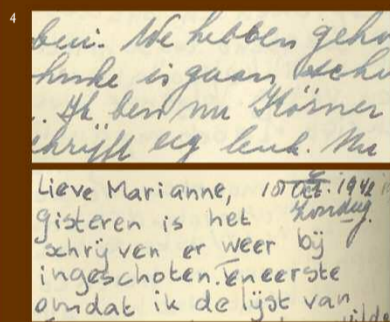 4
ben. We hebben geho
hinke is gaan scha
.. Ik ben nu Körner
chrijft erg leuk. Nu
Lieve Marianne, 18 Oct. 1942
Zondag.
gisteren is het
schrijven er weer bij
ingeschoten. Ten eerste
omdat ik de lijst van